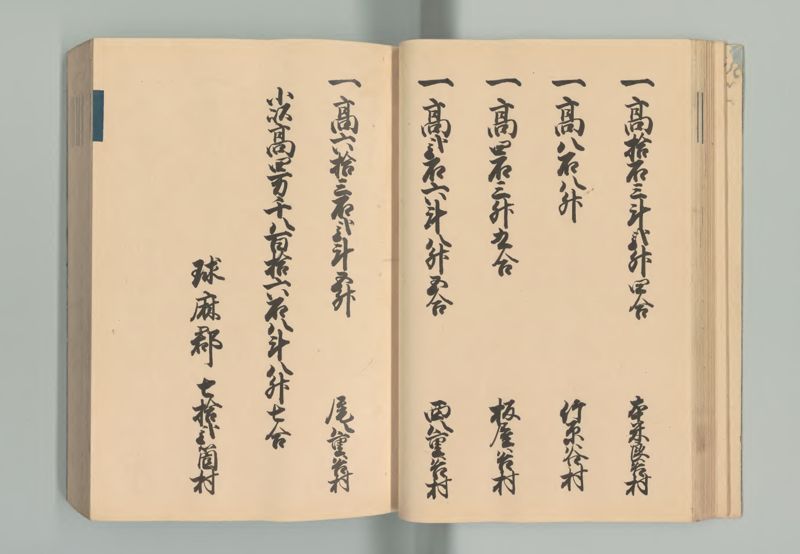 一 高拾石三斗弐升四合 本米良谷村
一 高八石八升 竹原谷村
一 高四石三升九合 板屋谷村
一 高弐石六斗八升五合 西八重谷村
一 高六拾三石弐斗五升 尾八重谷村
小以高四万千八百拾六石八斗八升七合
球麻郡 七拾弐箇村